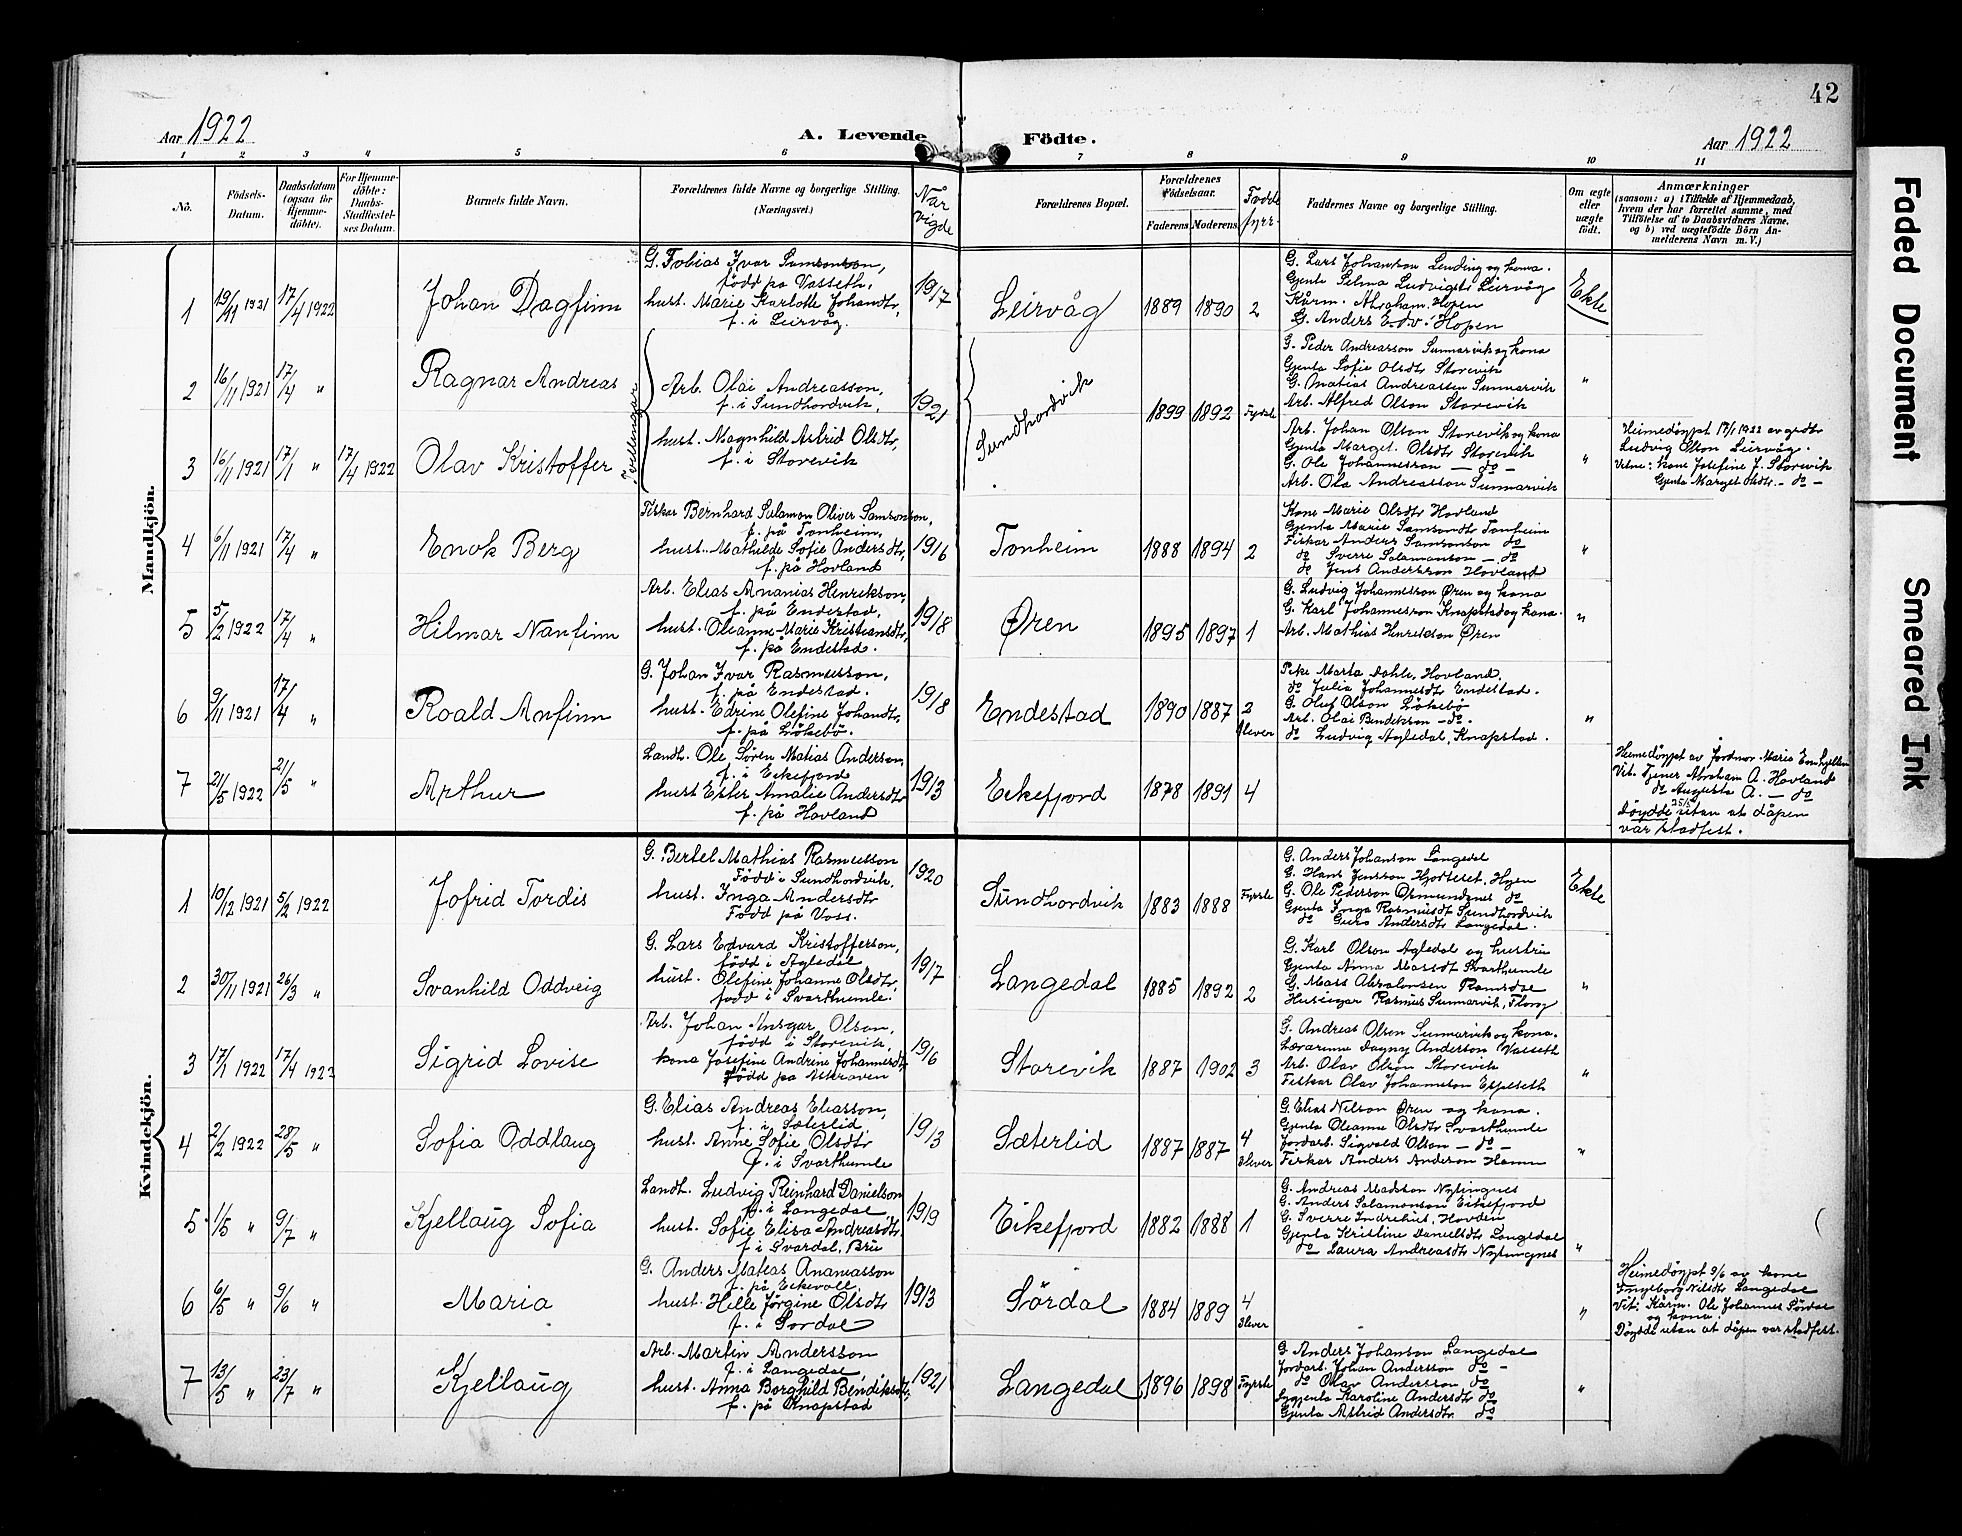 42
Aar 1922
A. Levende Födte.
Aar 1922
1 2 3 4 5 6 7 8 9 10 11
No.
Födsels-Datum.
Daabsdatum (ogsaa for Hjemmedöbte).
For Hjemmedöbte: Daabs-Stadfæstelses Datum.
Barnets fulde Navn.
Forældrenes fulde Navne og borgerlige Stilling.
(Næringsvei.)
Når vigde
Forældrenes Bopæl.
Forældrenes Födselsaar.
Faderens Moderens
Fødde fyrr
Faddernes Navne og borgerlige Stilling.
Om ægte eller uægte födt.
Anmærkninger
(saasom: a) i Tilfælde af Hjemmedaab, hvem der har forrettet samme, med Tilföielse af to Daabsvidners Navne, og b) ved uægtefödte Börn Anmelderens Navn m. V.)
Mandkjön.
1 19/11 1921 17/4 1922 Johan Dagfinn
G. Tobias Ivar Samsonson,
född på Vasseth,
hust. Marie Karlotte Johandtr,
f. i Leirvåg.
1917 Leirvåg 1889 1890 2
G. Lars Johanson Lending og kona.
Gjenta Selma Ludvigdt Leirvåg
Kårm. Abraham Hopen
G. Anders Edv. Hopen
Ekte
2 16/11 1921 17/4 " Ragnar Andreas
Tvillingar
Arb. Olai Andreasson,
f. i Sundhordvik,
hust. Magnhild Astrid Olsdtr,
f. i Storevik
1921 Sundhordvik 1899 1892 Fyrste
G. Peder Andreasson Sunnarvik og kona
Gjenta Sofie Olsdtr Storevik
G. Matias Andreassen Sunnarvik
Arb. Alfred Olson Storevik
"
3 16/11 1921 17/1 " 17/4 1922 Olav Kristoffer
Arb. Johan Olson Storevik og kona
Gjenta Marget Olsdtr Storevik
G. Ole Johannesson — do —
Arb. Ola Andreasson Sunnarvik
"
Heimedøypt 17/1 1922 av grdbr
Ludvig Olson Leirvåg.
Vitne: kone Josefine J. Storevik
Gjenta Marget Olsdtr. — do —
4 6/11 1921 17/4 " Enok Berg
Fiskar Bernhard Salamon Oliver Samsonson,
f. på Tonheim,
hust. Mathilde Sofie Andersdtr,
f. på Hovland
1916 Tonheim 1888 1894 2
Kone Marie Olsdtr Hovland
Gjenta Marie Samsondtr Tonheim
Fiskar Anders Samsonson do
do Sverre Salamonson — do
do Jens Andersson Hovland
"
5 5/2 1922 17/4 " Hilmar Nanfinn
Arb. Elias Ananias Henrikson,
f. på Endestad,
hust. Oleanne Marie Kristiansdtr,
f. på Endestad.
1918 Øren 1895 1897 1
G. Ludvig Johannesson Øren og kona
G. Karl Johannesson Knapstad og kona.
Arb. Mathias Henrikson Øren
"
6 9/11 1921 17/4 " Roald Anfinn
G. Johan Ivar Rasmusson,
f. på Endestad.
hust. Edrine Olefine Johandtr,
f. på Løkebø.
1918 Endestad 1890 1887 2 1 lever
Pike Marta Dahle, Hovland.
do Julia Johannesdtr Endestad.
G. Oluf Olson Løkebø
Arb. Olai Bendikson — do.
do Ludvig Agledal, Knapstad.
"
7 21/5 1922 21/5 " Arthur
Landh. Ole Søren Matias Anderson,
f. i Eikefjord
hust Ester Amalie Andersdtr
f. på Hovland
1913 Eikefjord 1878 1891 4
Heimedøypt av jordmor Maria Emhjellen
Vit. Tjener Abraham A. Hovland
do Augusta A. — do
Døydde 25/5 utan at dåpen
var stadfest.
Kvindekjön.
1 10/12 1921 5/2 1922 Jofrid Tordis
G. Bertel Mathias Rasmusson
Född i Sundhordvik.
hust. Inga Andersdtr
Född på Voss.
1920 Sundhordvik 1883 1888 Fyrste
G. Anders Johanson Langedal
G. Hans Jensson Hjorteset, Hyen
G. Ole Pederson Osmundsnes do
Gjenta Inga Rasmusdt Sundhordvik
do Guro Andersdtr Langedal.
Ekte
2 30/11 1921 26/3 " Svanhild Oddveig
G. Lars Edvard Kristofferson,
född i Agledal
hust. Olefine Johanne Olsdtr,
född i Svarthumle.
1917 Langedal 1885 1892 2
G. Karl Olson Agledal og hustru
Gjenta Anna Massdt Svarthumle
G. Mass Absalonsen Ramsdal
Huseigar Rasmus Sunnarvik, Florø
"
3 17/1 1922 17/4 1922 Sigrid Lovise
Arb. Johan Ansgar Olson,
född i Storevik,
kona Josefine Andrine Johannesdt,
Född på Askraven
1916 Storevik 1887 1902 3
G. Andreas Olsen Sunnarvik og kona.
Lærarinne Dagny Anderson Vasseth
Arb. Olav Olson Storevik
Fiskar Olav Johanneson Espeseth
"
4 2/2 1922 28/5 " Sofia Oddlaug
G. Elias Andreas Eliasson,
f. i Sæterlid
hust. Anne Sofie Olsdtr
f. i Svarthumle
1913 Sæterlid 1887 1887 4 3 lever
G. Elias Nilson Øren og kona.
Gjenta Oleanne Olsdtr Svarthumle
Jordarb. Sigvald Olson — do —
Fiskar Anders Anderson Hamn
"
5 1/5 " 9/7 " Kjellaug Sofia
Landh. Ludvig Reinhard Danielson
f. i Langedal,
hust. Sofie Elisa Andreasdtr
f. i Svardal, Bru
1919 Eikefjord 1882 1888 1
G. Andreas Madsson Nytingnes
G. Anders Salamonson Eikefjord
G. Sverre Indrehus, Hovden
Gjenta Kristine Danielsdtr Langedal
do Laura Andreasdt Nytingnes
"
6 6/5 " 9/6 " Maria
G. Anders Matias Ananiasson
f. på Eikevoll
hust. Helle Jørgine Olsdtr
f. i Sørdal
1913 Sørdal 1884 1889 4 3 lever
"
Heimedøypt 9/6 av kone
Ingeborg Nilsdtr Langedal
Vit: Kårm. Ole Johannes Sørdal
og kona.
Døydde utan at dåpen var stadfest.
7 13/5 " 23/7 " Kjellaug
Arb. Martin Andersson
f. i Langedal,
hust. Anna Borghild Bendiksdtr,
f. på Knapstad
1921 Langedal 1896 1898 Fyrste
G. Anders Johanson Langedal
Jordarb. Johan Andersson do —
do Olav Andersson do
Gjenta Karoline Andersdtr do
Gjenta Astrid Andersdtr. do
"
Faded Document
Smeared Ink